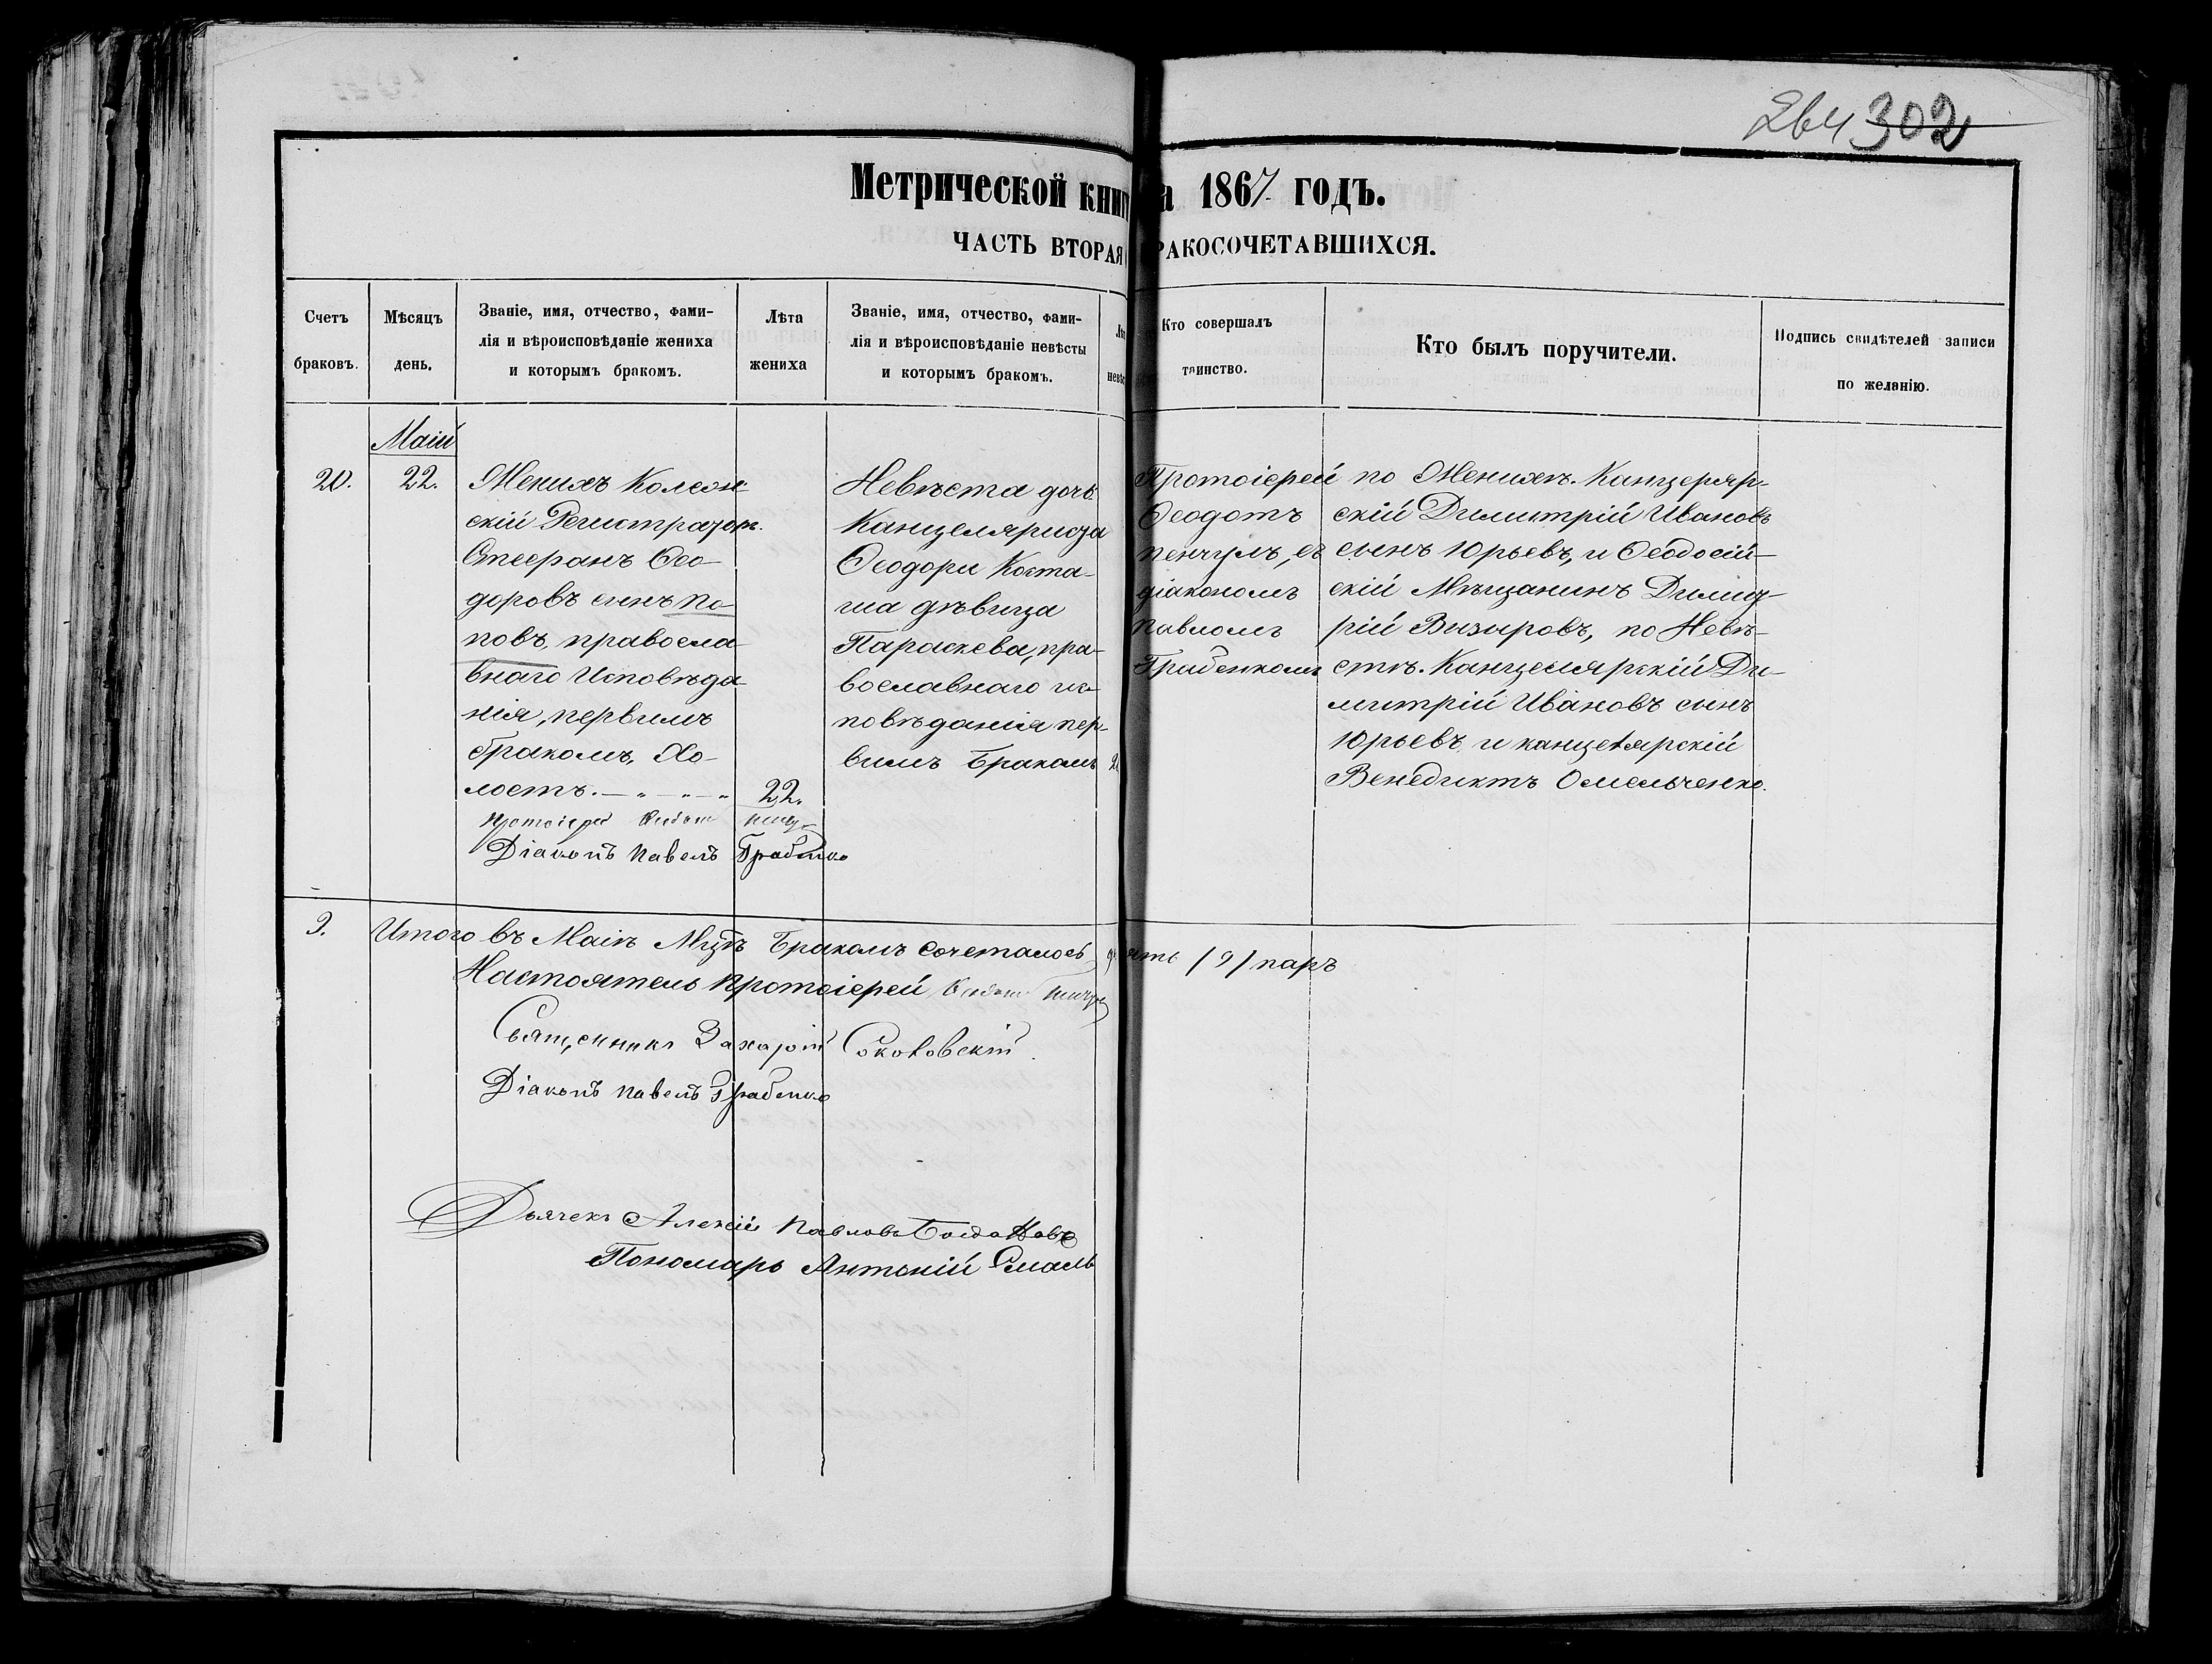 264 302
Метрической книг а 1867 годъ.
ЧАСТЬ ВТОРАЯ РАКОСОЧЕТАВШИХСЯ.
Счетъ
браковъ.
Мѣсяцъ
день.
Званіе, имя, отчество, фами-
лія и вѣроисповѣданіе жениха
и которымъ бракомъ.
Лѣта
жениха
Званіе, имя, отчество, фами-
лія и вѣроисповѣданіе невѣсты
и которымъ бракомъ.
Кто совершалъ
таинство.
Кто былъ поручители.
Подпись свидѣтелей записи
по желанію.
Маій
20.
22.
Женихъ Колеж-
скій Регистраторъ.
Стефанъ Ѳео-
доровъ сынъ По-
повъ, правосла-
внаго Исповѣда-
нія, первымъ
бракомъ, Хо-
лостъ. — „ — „ — „
22.
Протоіерей
Діаконъ Павелъ Грабенко
Невѣста дочь
Канцеляриста
Ѳеодора Коста-
дѣвица
Параскева, пра-
вославнаго ис-
повѣданія пер-
вымъ Бракомъ
Протоіерей
Ѳеодотъ
Пенчулъ, съ
діакономъ
Павломъ
Грабенкомъ
по Женихѣ. Канцеляр-
скій Димитрій Ивановъ
сынъ Юрьевъ, и Ѳеодосій-
скій Мѣщанинъ Димит-
рій Визыровъ, по Невѣ-
стѣ. Канцелярскій Ди-
митрій Ивановъ сынъ
Юрьевъ и канцелярскій
Венедиктъ Омельченко.
9.
Итого въ Маіѣ Мцѣ Бракомъ сочеталось ять /9/ паръ
Настоятель Протоіерей
Священникъ Захарій Соколовскій.
Діаконъ Павелъ Грабенко
Дьячекъ Алексій Павловъ Богдановъ
Пономарь Антоній Смаль